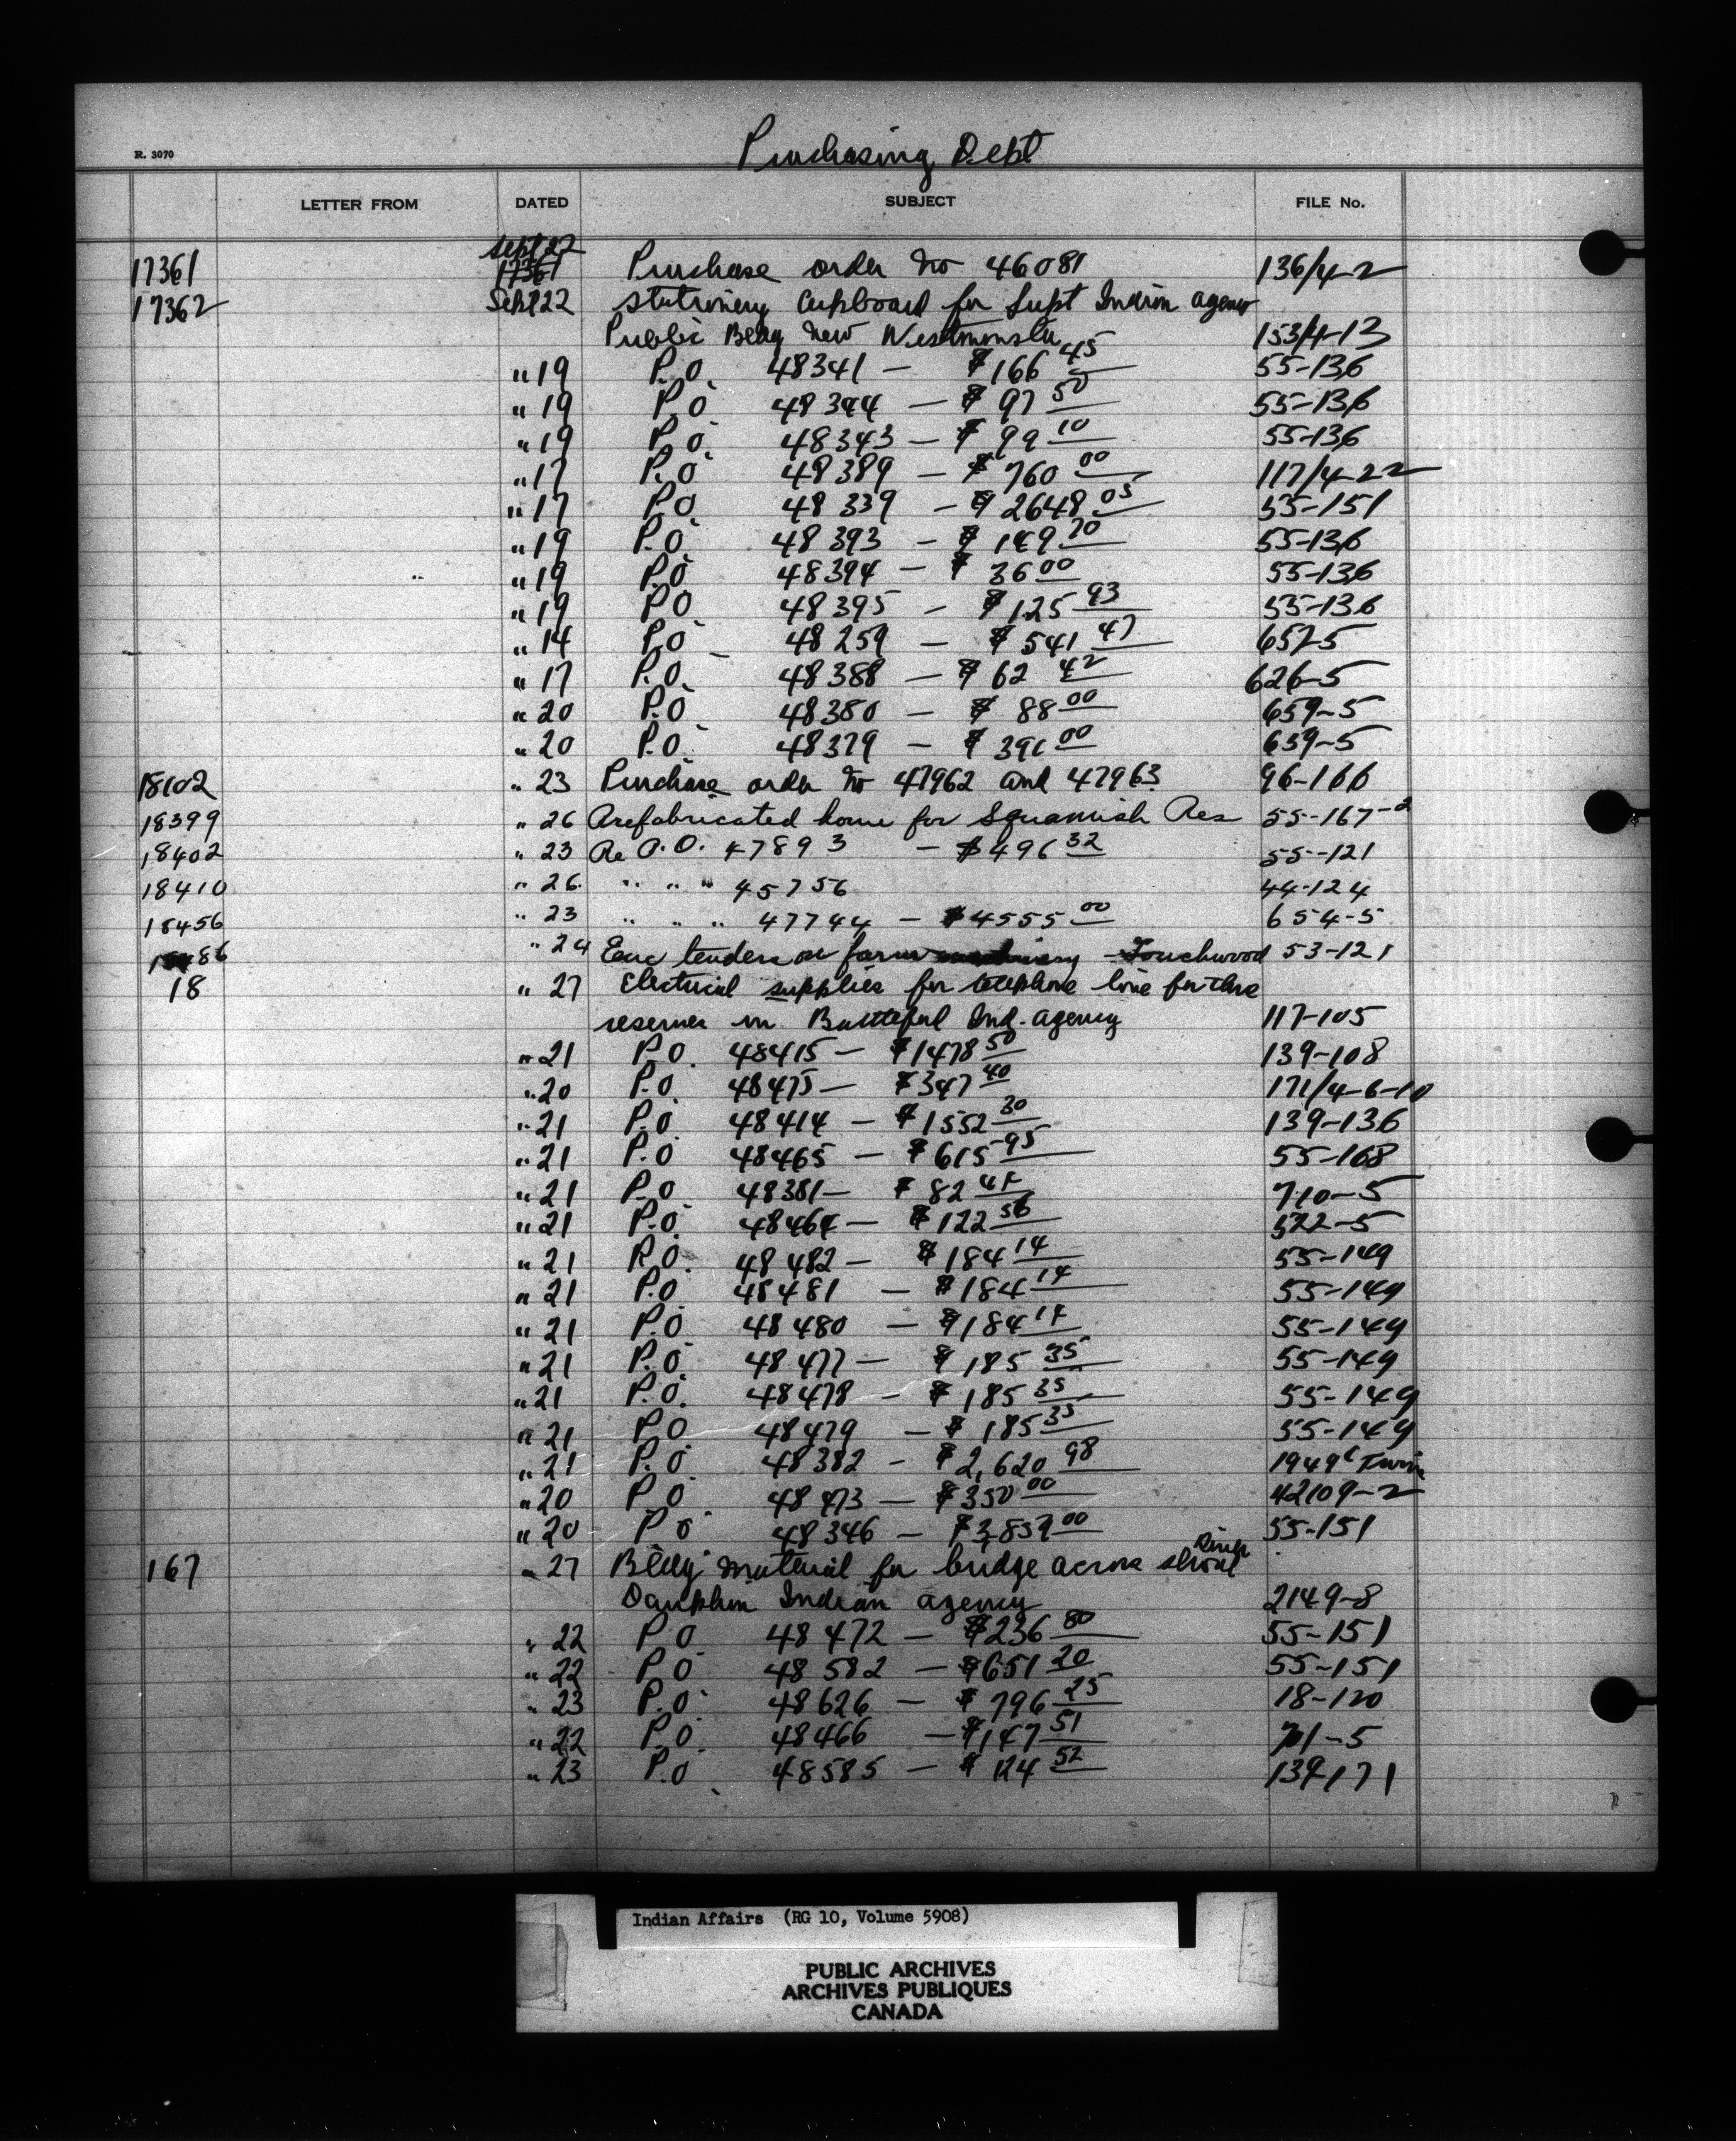 Purchasing Dept
R. 3070
LETTER FROM DATED SUBJECT FILE No.
Sept 22
17361 17361 Purchase order No 46081 136/4-2
17362 Sept 22 Stationery Cupboard for Supt Indian agency
Public Bldg New Westminster 153/4-13
" 19 P.O. 48341 — $166 45 55-136
" 19 P.O 48344 — $97 50 55-136
" 19 P.O. 48343 — $99 10 55-136
" 17 P.O 48389 — $760 00 117/4-22
" 17 P.O 48339 — $2648 05 55-151
" 19 P.O. 48393 — $149 70 55-136
" 19 P.O 48394 — $36 00 55-136
" 19 P.O 48395 — $125 93 55-136
" 14 P.O 48259 — $541 47 657-5
" 17 P.O. 48388 — $62 42 626-5
" 20 P.O 48380 — $88 00 659-5
" 20 P.O. 48379 — $391 00 659-5
18102 " 23 Purchase order No 47962 and 47963 96-166
18399 " 26 Prefabricated home for Squamish Res 55-167-2
18402 " 23 Re P.O. 47893 — $496 32 55-121
18410 " 26 " " " 45756 44-124
18456 " 23 " " " 47744 — $4555 00 654-5
" 24 Enc tenders on farm machinery - Touchwood 53-121
18 " 27 Electrical supplies for telephone line for three
reserves in Battleford Ind. agency 117-105
" 21 P.O. 48415 — $1478 50 139-108
" 20 P.O. 48475 — $347 40 171/4-6-10
" 21 P.O. 48414 — $1552 30 139-136
" 21 P.O 48465 — $615 95 55-168
" 21 P.O 48381 — $82 44 710-5
" 21 P.O 48464 — $122 56 522-5
" 21 P.O. 48482 — $184 14 55-149
" 21 P.O 48481 — $184 14 55-149
" 21 P.O 48480 — $184 14 55-149
" 21 P.O 48477 — $185 35 55-149
" 21 P.O. 48478 — $185 35 55-149
" 21 P.O 48479 — $185 35 55-149
" 21 P.O 48382 — $2,620 98 1949 Twine
" 20 P.O 48473 — $350 00 42109-2
" 20 P O 48346 — $3859 00 55-151
167 " 27 Bldg material for bridge across Shoal River
Dauphin Indian agency 2149-8
" 22 P O 48472 — $236 80 55-151
" 22 P.O 48582 — $651 20 55-151
" 23 P.O. 48626 — $796 25 18-120
" 22 P.O. 48466 — $147 51 701-5
" 23 P.O 48585 — $124 52 139-171
Indian Affairs (RG 10, Volume 5908)
PUBLIC ARCHIVES
ARCHIVES PUBLIQUES
CANADA